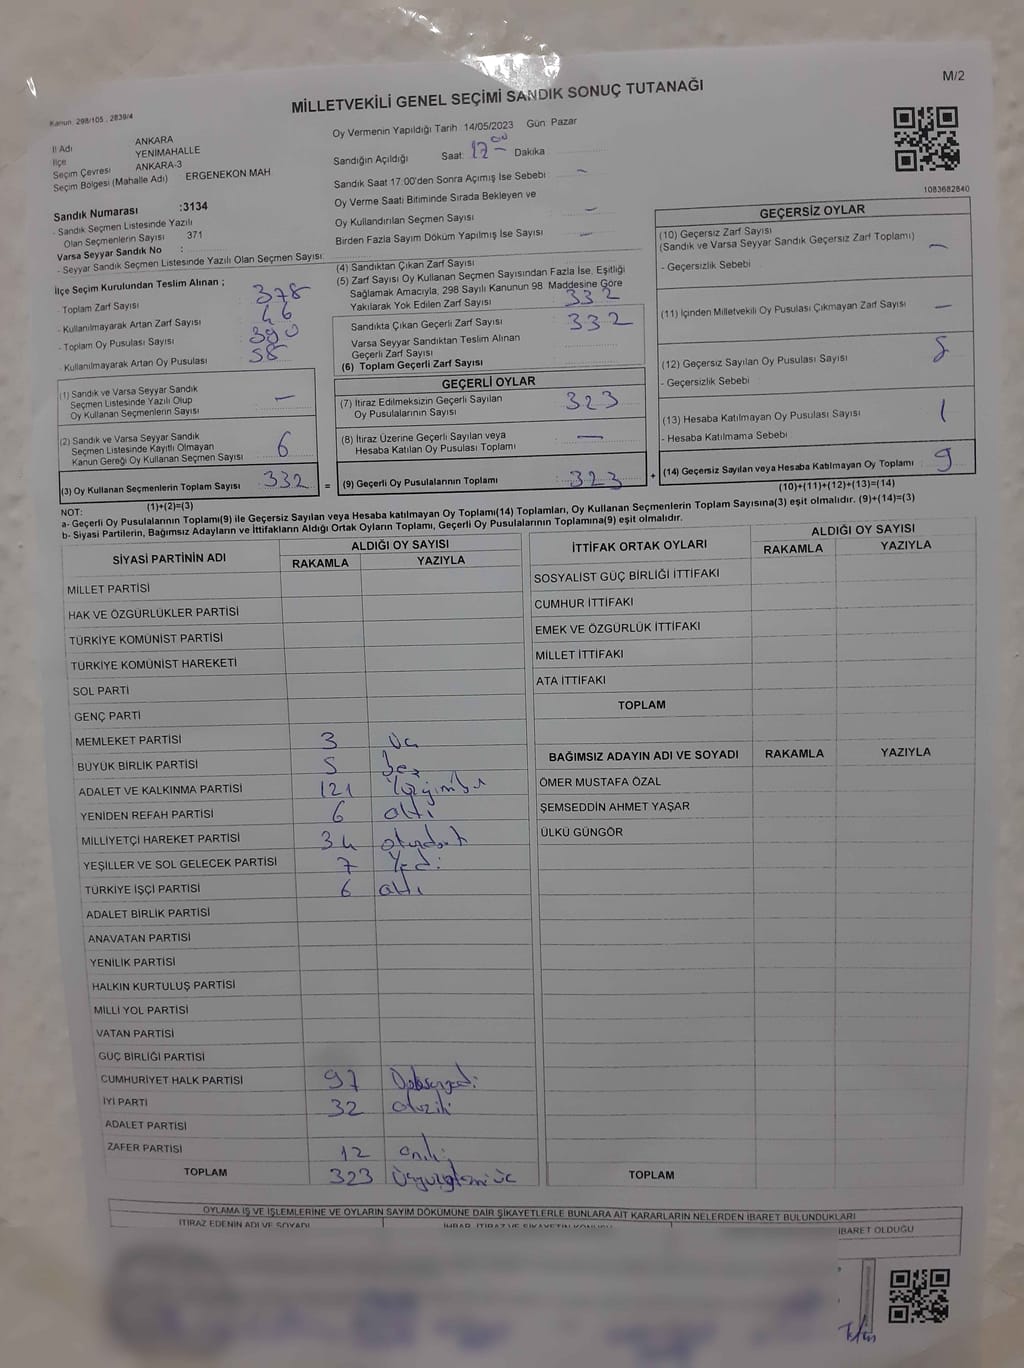 M/2
Kanun: 298/105 , 2839/4
MİLLETVEKİLİ GENEL SEÇİMİ SANDIK SONUÇ TUTANAĞI
İl Adı ANKARA
İlçe YENİMAHALLE
Seçim Çevresi ANKARA-3
Seçim Bölgesi (Mahalle Adı) ERGENEKON MAH
Sandık Numarası :3134
- Sandık Seçmen Listesinde Yazılı
Olan Seçmenlerin Sayısı 371
Varsa Seyyar Sandık No :
- Seyyar Sandık Seçmen Listesinde Yazılı Olan Seçmen Sayısı:
İlçe Seçim Kurulundan Teslim Alınan ;
- Toplam Zarf Sayısı 378
- Kullanılmayarak Artan Zarf Sayısı 46
- Toplam Oy Pusulası Sayısı 390
- Kullanılmayarak Artan Oy Pusulası 58
(1) Sandık ve Varsa Seyyar Sandık
Seçmen Listesinde Yazılı Olup
Oy Kullanan Seçmenlerin Sayısı —
(2) Sandık ve Varsa Seyyar Sandık
Seçmen Listesinde Kayıtlı Olmayan
Kanun Gereği Oy Kullanan Seçmen Sayısı 6
(3) Oy Kullanan Seçmenlerin Toplam Sayısı 332
(1)+(2)=(3)
Oy Vermenin Yapıldığı Tarih 14/05/2023 Gün Pazar
Sandığın Açıldığı Saat: 17 00 Dakika
Sandık Saat 17:00'den Sonra Açımış İse Sebebi
Oy Verme Saati Bitiminde Sırada Bekleyen ve
Oy Kullandırılan Seçmen Sayısı —
Birden Fazla Sayım Döküm Yapılmış İse Sayısı —
(4) Sandıktan Çıkan Zarf Sayısı
(5) Zarf Sayısı Oy Kullanan Seçmen Sayısından Fazla İse, Eşitliği
Sağlamak Amacıyla, 298 Sayılı Kanunun 98 Maddesine Göre
Yakılarak Yok Edilen Zarf Sayısı 332
Sandıkta Çıkan Geçerli Zarf Sayısı 332
Varsa Seyyar Sandıktan Teslim Alınan
Geçerli Zarf Sayısı
(6) Toplam Geçerli Zarf Sayısı
GEÇERLİ OYLAR
(7) İtiraz Edilmeksizin Geçerli Sayılan
Oy Pusulalarının Sayısı 323
(8) İtiraz Üzerine Geçerli Sayılan veya
Hesaba Katılan Oy Pusulası Toplamı —
= (9) Geçerli Oy Pusulalarının Toplamı 323
1083682840
GEÇERSİZ OYLAR
(10) Geçersiz Zarf Sayısı
(Sandık ve Varsa Seyyar Sandık Geçersiz Zarf Toplamı) —
- Geçersizlik Sebebi
(11) İçinden Milletvekili Oy Pusulası Çıkmayan Zarf Sayısı —
(12) Geçersiz Sayılan Oy Pusulası Sayısı 8
- Geçersizlik Sebebi
(13) Hesaba Katılmayan Oy Pusulası Sayısı 1
- Hesaba Katılmama Sebebi
+ (14) Geçersiz Sayılan veya Hesaba Katılmayan Oy Toplamı 9
(10)+(11)+(12)+(13)=(14)
NOT:
a- Geçerli Oy Pusulalarının Toplamı(9) ile Geçersiz Sayılan veya Hesaba katılmayan Oy Toplamı(14) Toplamları, Oy Kullanan Seçmenlerin Toplam Sayısına(3) eşit olmalıdır. (9)+(14)=(3)
b- Siyasi Partilerin, Bağımsız Adayların ve İttifakların Aldığı Ortak Oyların Toplamı, Geçerli Oy Pusulalarının Toplamına(9) eşit olmalıdır.
SİYASİ PARTİNİN ADI ALDIĞI OY SAYISI
RAKAMLA YAZIYLA
MİLLET PARTİSİ
HAK VE ÖZGÜRLÜKLER PARTİSİ
TÜRKİYE KOMÜNİST PARTİSİ
TÜRKİYE KOMÜNİST HAREKETİ
SOL PARTİ
GENÇ PARTİ
MEMLEKET PARTİSİ 3 Üç
BÜYÜK BİRLİK PARTİSİ 5 beş
ADALET VE KALKINMA PARTİSİ 121
YENİDEN REFAH PARTİSİ 6 altı
MİLLİYETÇİ HAREKET PARTİSİ 34 otuzdört
YEŞİLLER VE SOL GELECEK PARTİSİ 7 Yedi
TÜRKİYE İŞÇİ PARTİSİ 6 altı
ADALET BİRLİK PARTİSİ
ANAVATAN PARTİSİ
YENİLİK PARTİSİ
HALKIN KURTULUŞ PARTİSİ
MİLLİ YOL PARTİSİ
VATAN PARTİSİ
GÜÇ BİRLİĞİ PARTİSİ
CUMHURİYET HALK PARTİSİ 97
İYİ PARTİ 32 otuziki
ADALET PARTİSİ
ZAFER PARTİSİ 12 oniki
TOPLAM 323 Üçyüzyirmiüç
İTTİFAK ORTAK OYLARI ALDIĞI OY SAYISI
RAKAMLA YAZIYLA
SOSYALİST GÜÇ BİRLİĞİ İTTİFAKI
CUMHUR İTTİFAKI
EMEK VE ÖZGÜRLÜK İTTİFAKI
MİLLET İTTİFAKI
ATA İTTİFAKI
TOPLAM
BAĞIMSIZ ADAYIN ADI VE SOYADI RAKAMLA YAZIYLA
ÖMER MUSTAFA ÖZAL
ŞEMSEDDİN AHMET YAŞAR
ÜLKÜ GÜNGÖR
TOPLAM
OYLAMA İŞ VE İŞLEMLERİNE VE OYLARIN SAYIM DÖKÜMÜNE DAİR ŞİKAYETLERLE BUNLARA AİT KARARLARIN NELERDEN İBARET BULUNDUKLARI
İTİRAZ EDENİN ADI VE SOYADI İHBAR, İTİRAZ VE ŞİKAYETİN KONUSU İBARET OLDUĞU